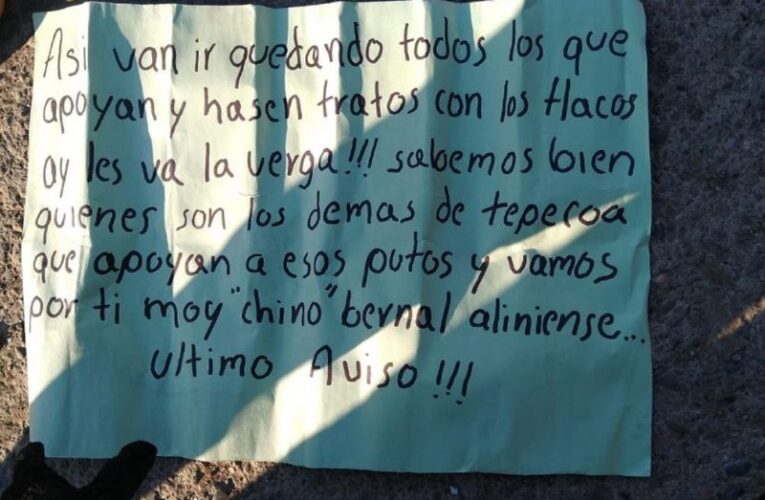 Asi van ir quedando todos los que
apoyan y hasen tratos con los flacos
ay les va la verga!!! sabemos bien
quienes son los demas de tepecoa
que apoyan a esos putos y vamos
por ti moy "chino" bernal aliniense...
ultimo Aviso!!!